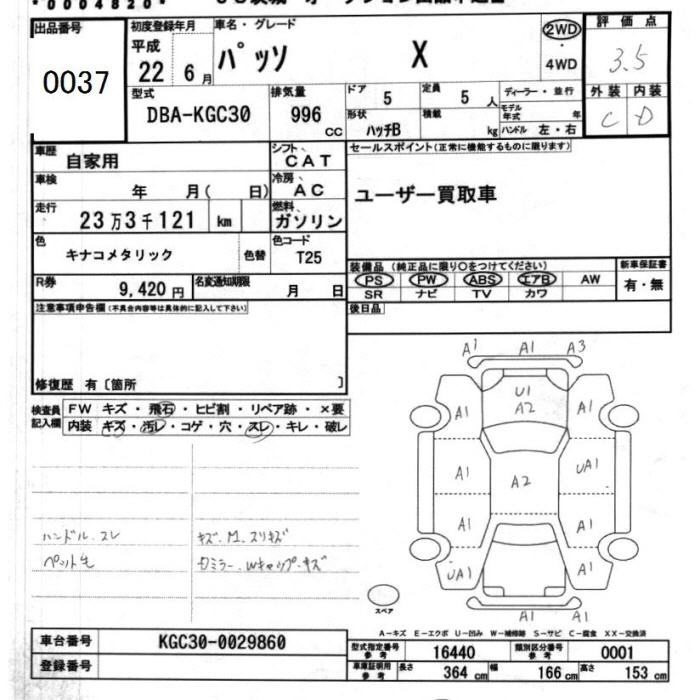 0004820
出品番号
0037
初度登録年月
平成
22 6月
車名・グレード
パッソ X
2WD
・
4WD
評価点
3.5
外装 内装
C D
型式
DBA-KGC30
排気量
996 CC
ドア 5
定員 5 人
形状 ハッチB
積載 kg
ディーラー・並行
モデル年式 年
ハンドル 左・右
車歴 自家用
シフト CAT
車検 年 月( 日)
冷房 AC
走行 23万3千121 km
燃料 ガソリン
色 キナコメタリック
色替
色コード T25
R券 9,420円
名変通知期限 月 日
セールスポイント(正常に機能するものに限ります)
ユーザー買取車
装備品(純正品に限り○をつけてください)
PS PW ABS エアB AW
SR ナビ TV カワ
新車保証書
有・無
後日品
注意事項申告欄(不具合内容等は具体的に記入して下さい)
修復歴 有〔箇所 〕
検査員記入欄
FW キズ・飛石・ヒビ割・リペア跡・×要
内装 キズ・汚レ・コゲ・穴・スレ・キレ・破レ
ハンドル.スレ
ペット毛
キズ.M.スリキズ
ミラー.Wキャップ.キズ
A1 A1 A3
U1
A2
A1 A1
A1 A2 UA1
A1 A1
UA1 A1
A1 A1
スペア
A-キズ E-エクボ U-凹み W-補修跡 S-サビ C-腐食 XX-交換済
車台番号 KGC30-0029860
登録番号
型式指定番号 参考 16440
類別区分番号 参考 0001
車庫証明用 参考 長さ 364 cm 幅 166 cm 高さ 153 cm